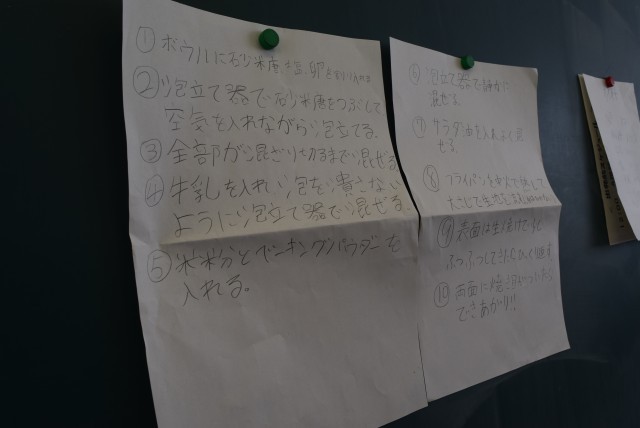 ① ボウルに砂糖・塩・卵を
② 泡立て器で砂糖をつぶして
空気を入れながら泡立てる。
③ 全部が混ざり切るまで混ぜる
④ 牛乳を入れ泡を潰さない
ように泡立て器で混ぜる
⑤ 米粉とベーキングパウダーを
入れる。
⑥ 泡立て器で
混ぜる。
⑦ サラダ油を入れよく混
ぜる。
⑧ フライパンを中火で熱して
⑨ 表面は生焼けで
ふつふつしてきたらひっくり返す
⑩ 両面に焼き目がついたら
できあがり!!